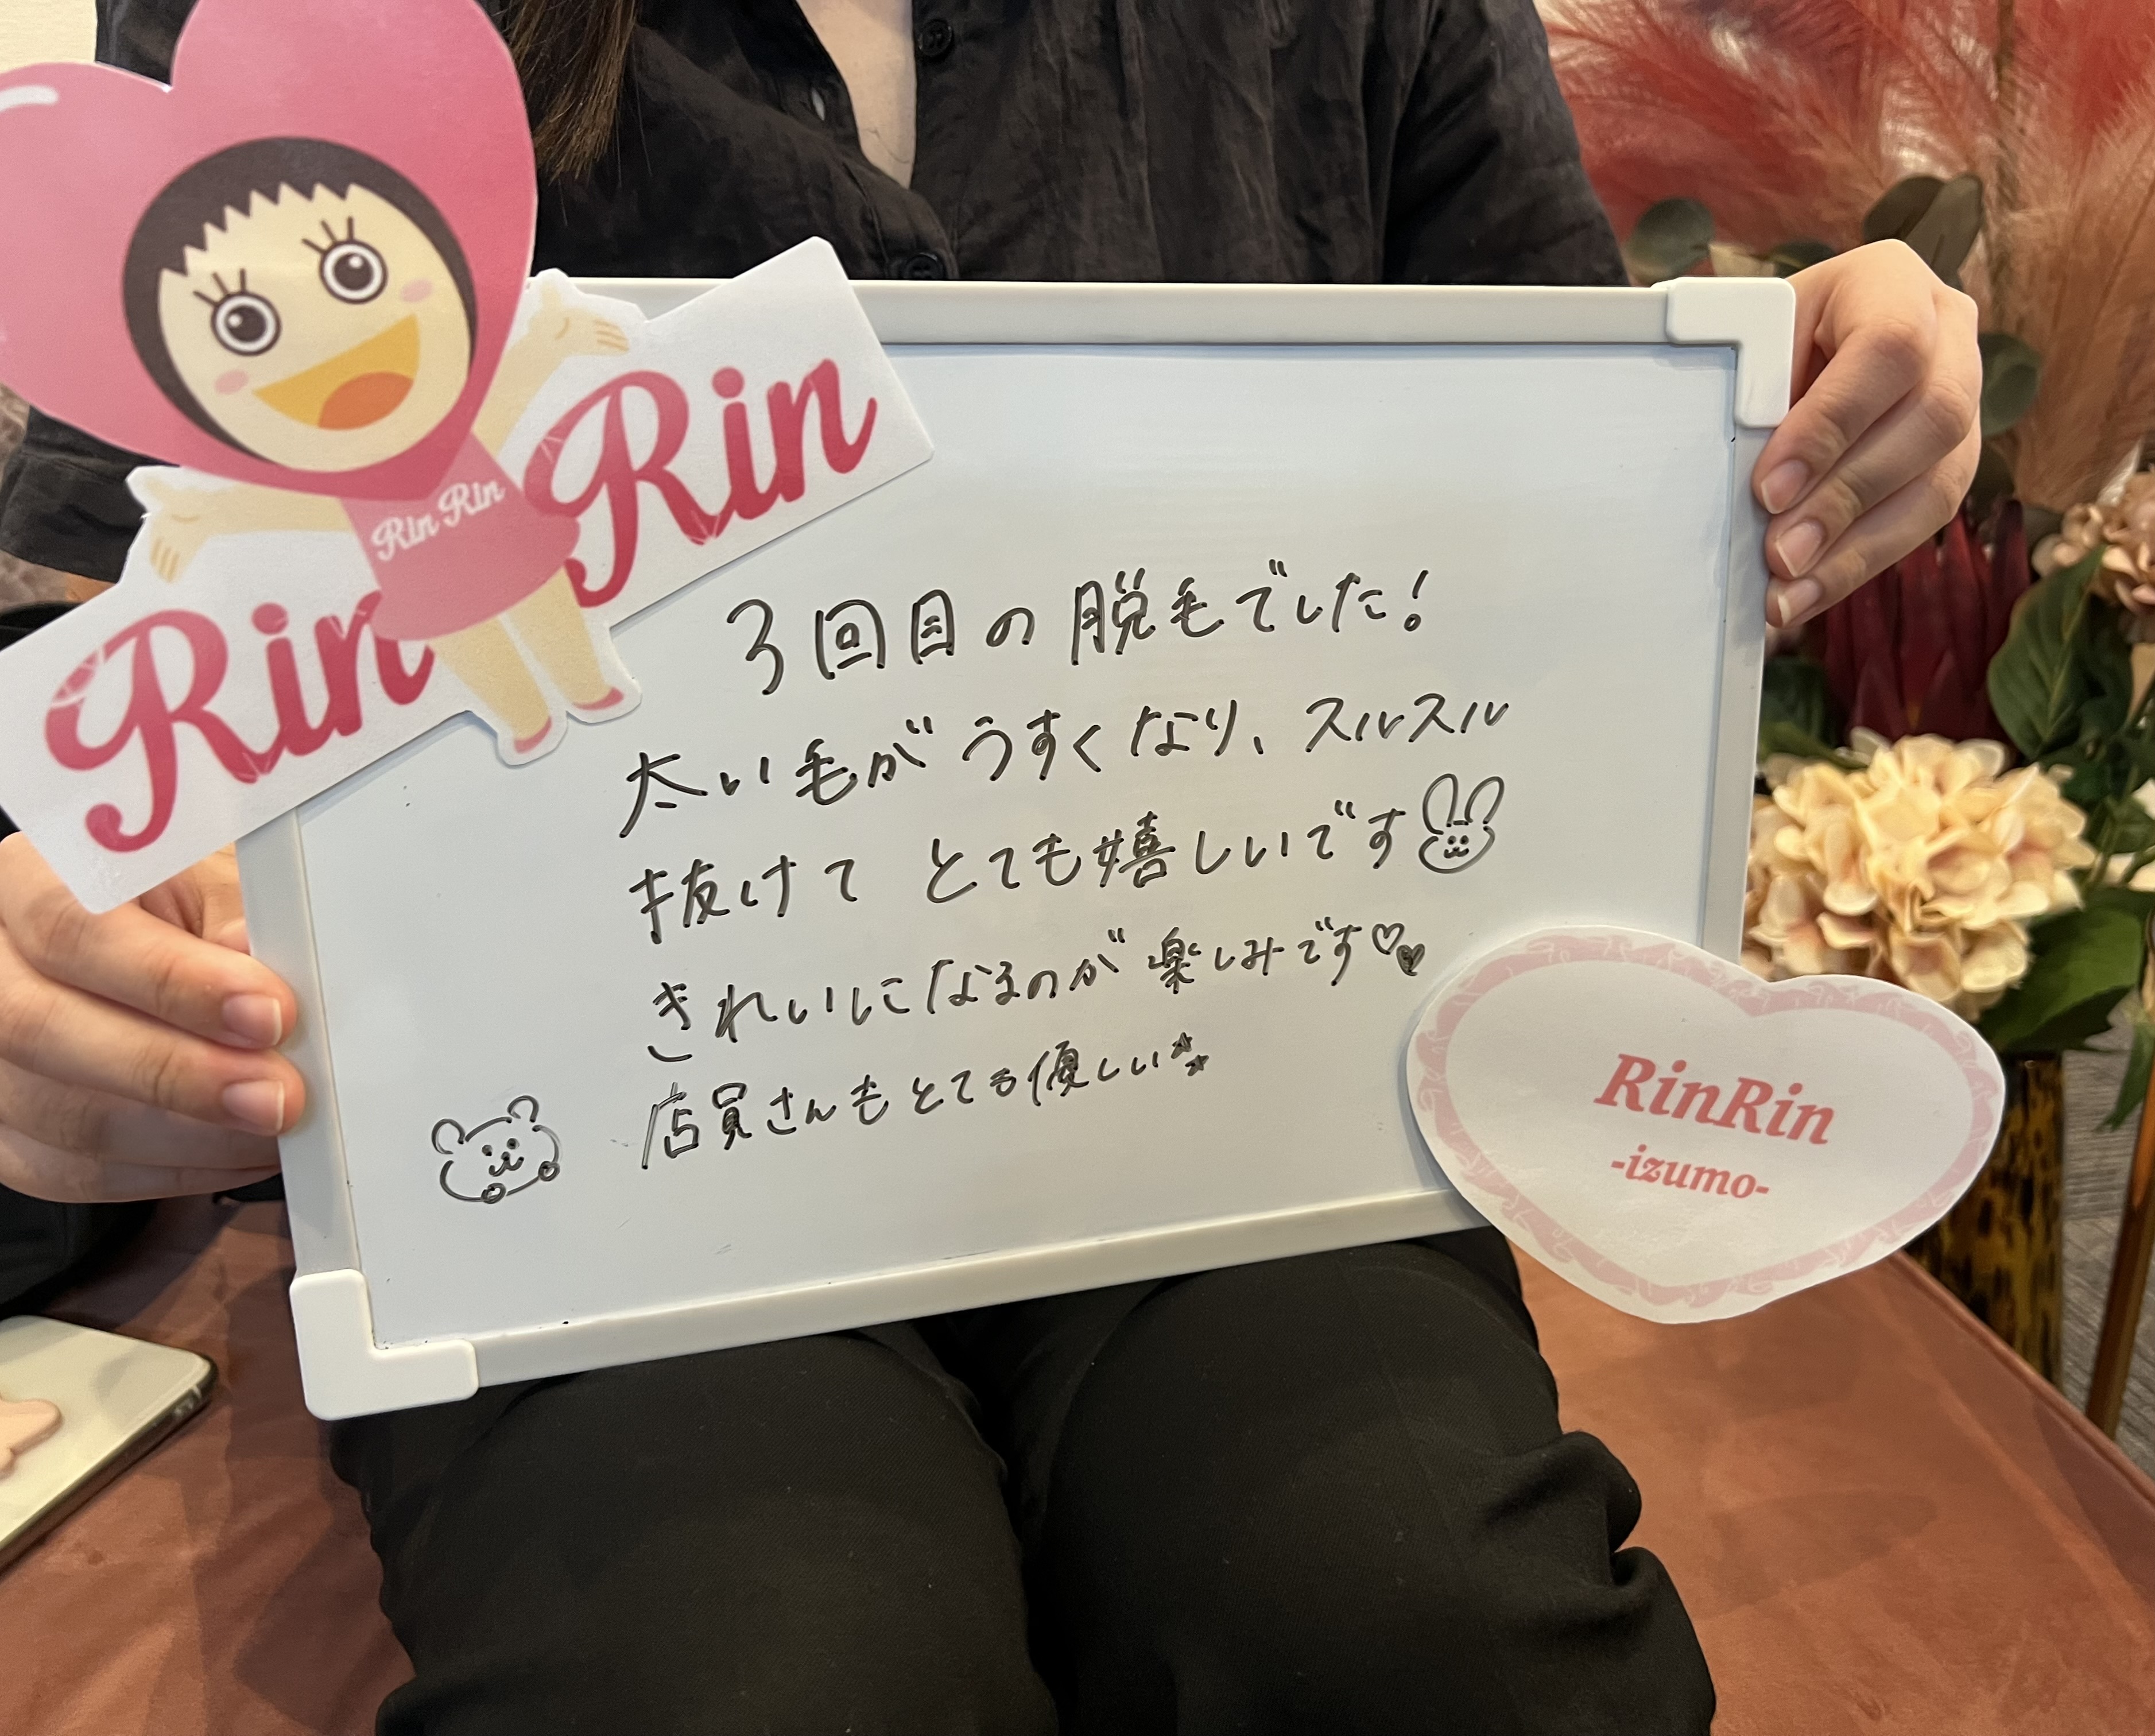 Rin Rin
Rin Rin
3回目の脱毛でした!
太い毛がうすくなり、スルスル
抜けて とても嬉しいです
きれいになるのが楽しみです♡♥
店員さんもとても優しい
RinRin
-izumo-